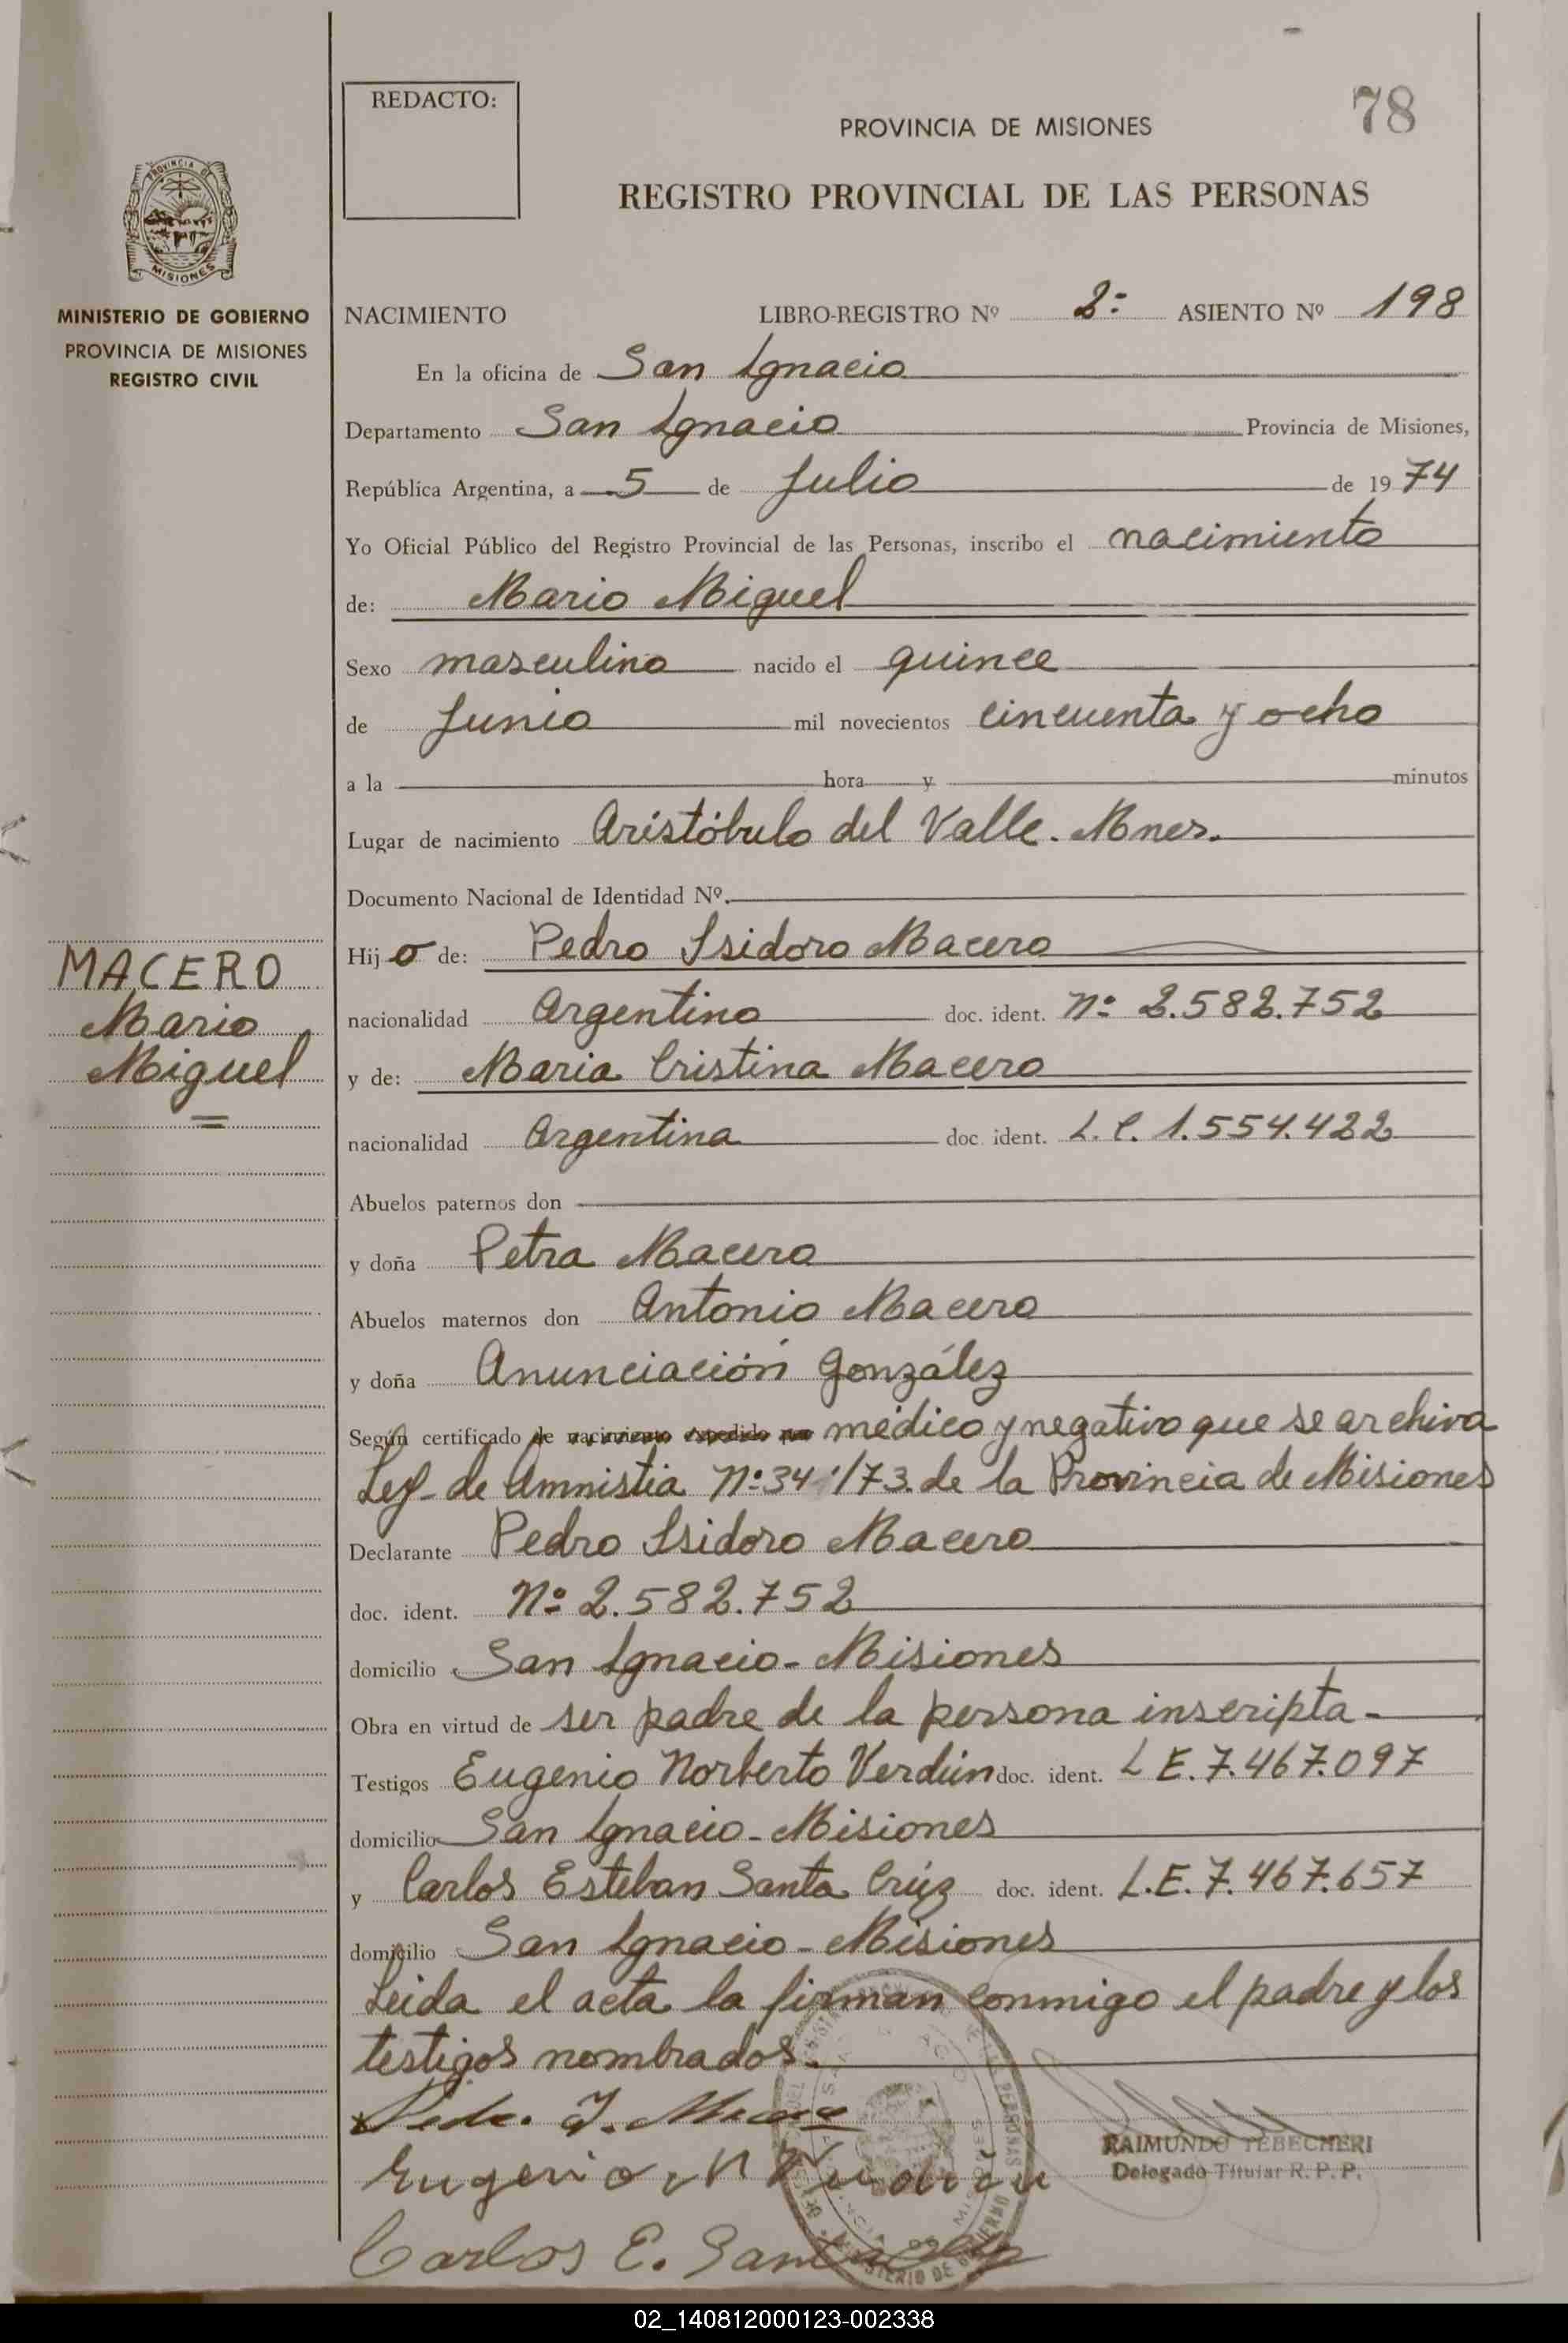 78
REDACTO:
PROVINCIA DE MISIONES
REGISTRO PROVINCIAL DE LAS PERSONAS
PROVINCIA DE
MISIONES
MINISTERIO DE GOBIERNO
PROVINCIA DE MISIONES
REGISTRO CIVIL
NACIMIENTO LIBRO-REGISTRO Nº 2º ASIENTO Nº 198
En la oficina de San Ignacio
Departamento San Ignacio Provincia de Misiones,
República Argentina, a 5 de Julio de 1974
Yo Oficial Público del Registro Provincial de las Personas, inscribo el nacimiento
de: Mario Miguel
Sexo masculino nacido el quince
de Junio mil novecientos cincuenta y ocho
a la hora y minutos
Lugar de nacimiento Aristóbulo del Valle. Mnes.
Documento Nacional de Identidad Nº.
MACERO
Mario
Miguel
Hijo de: Pedro Isidoro Macero
nacionalidad Argentino doc. ident. Nº 2.582.752
y de: Maria Cristina Macero
nacionalidad Argentina doc. ident. L.C. 1.554.422
Abuelos paternos don
y doña Petra Macero
Abuelos maternos don Antonio Macero
y doña Anunciación González
Según certificado de nacimiento expedido por médico y negativo que se archiva
Ley de Amnistia Nº /73. de la Provincia de Misiones
Declarante Pedro Isidoro Macero
doc. ident. Nº 2.582.752
domicilio San Ignacio - Misiones
Obra en virtud de ser padre de la persona inscripta -
Testigos Eugenio Norberto Verdún doc. ident. L E. 7.467.097
domicilio San Ignacio - Misiones
y Carlos Esteban Santa Crúz doc. ident. L.E. 7.467.657
domicilio San Ignacio - Misiones
Leida el acta la firman conmigo el padre y los
testigos nombrados.
RAIMUNDO TEBECHERI
Delegado Titular R. P. P.
Eugenio N
Carlos E.
02_140812000123-002338